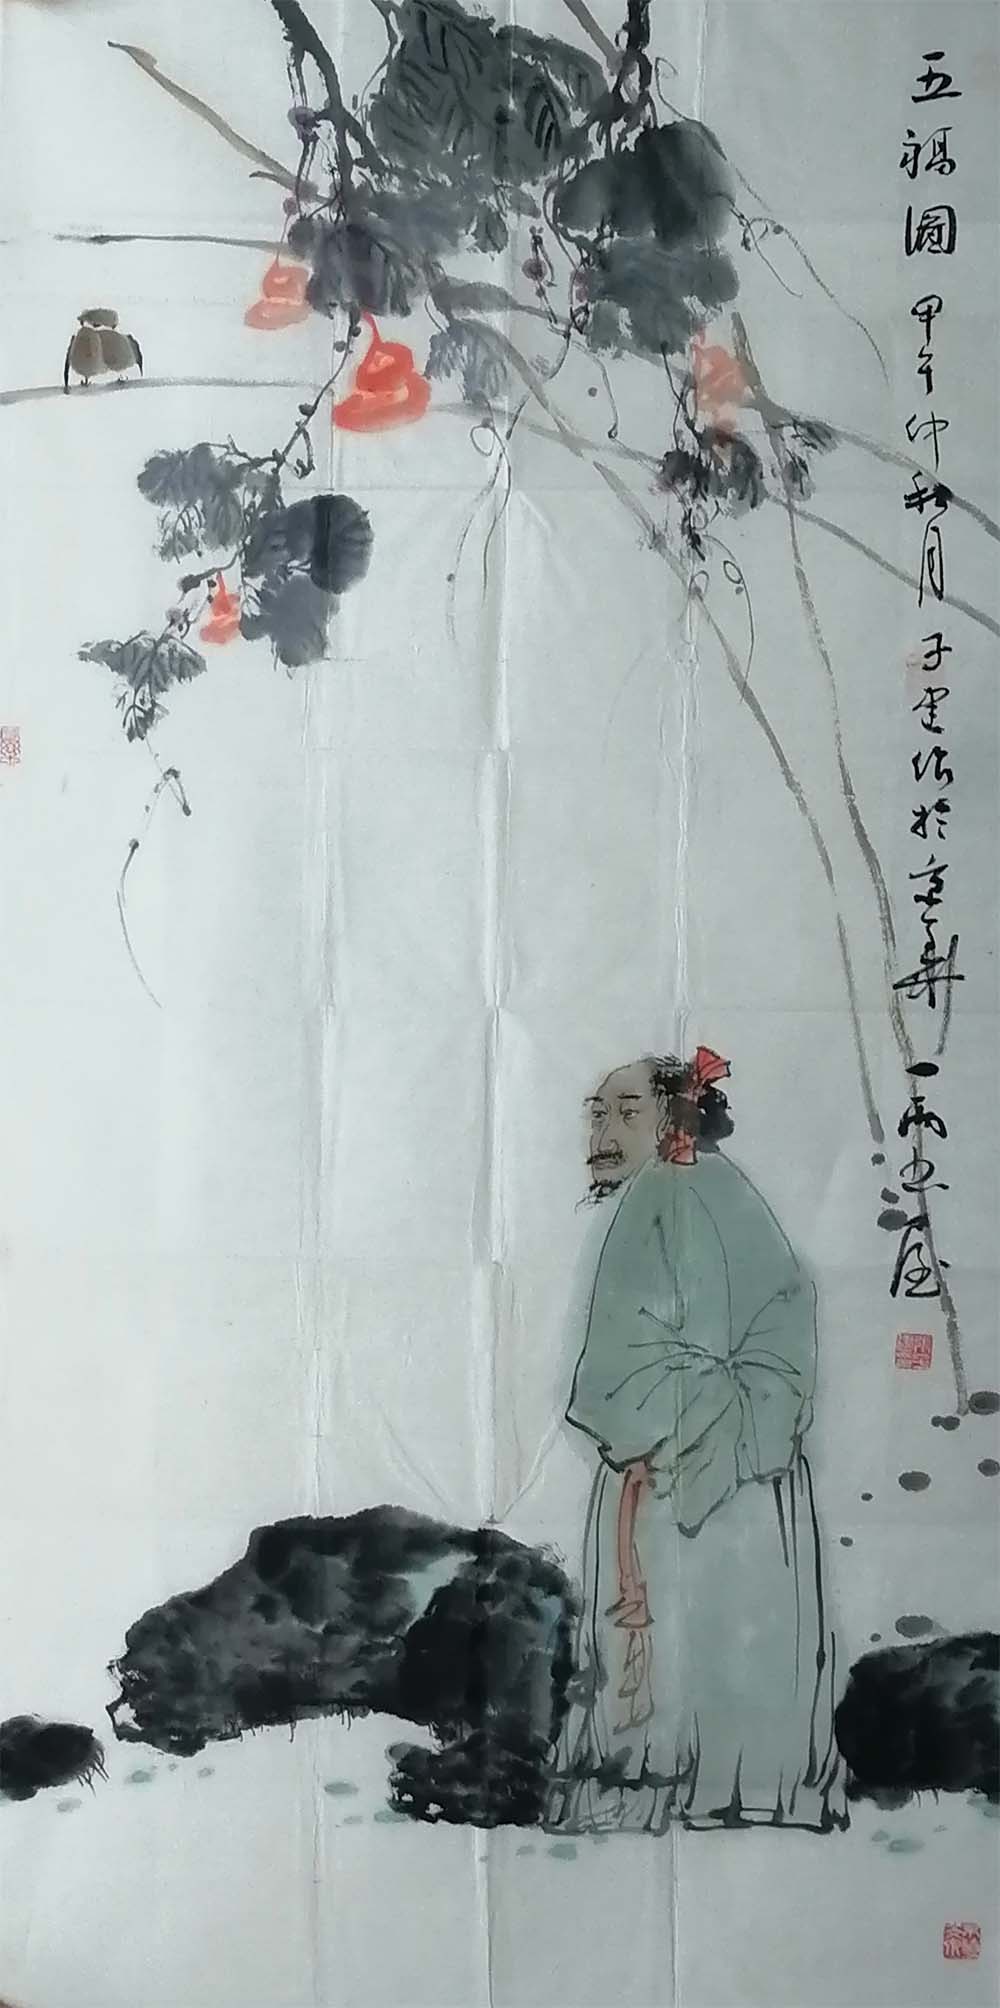 五福圖 甲午仲秋月 子建作於京華一雨書屋